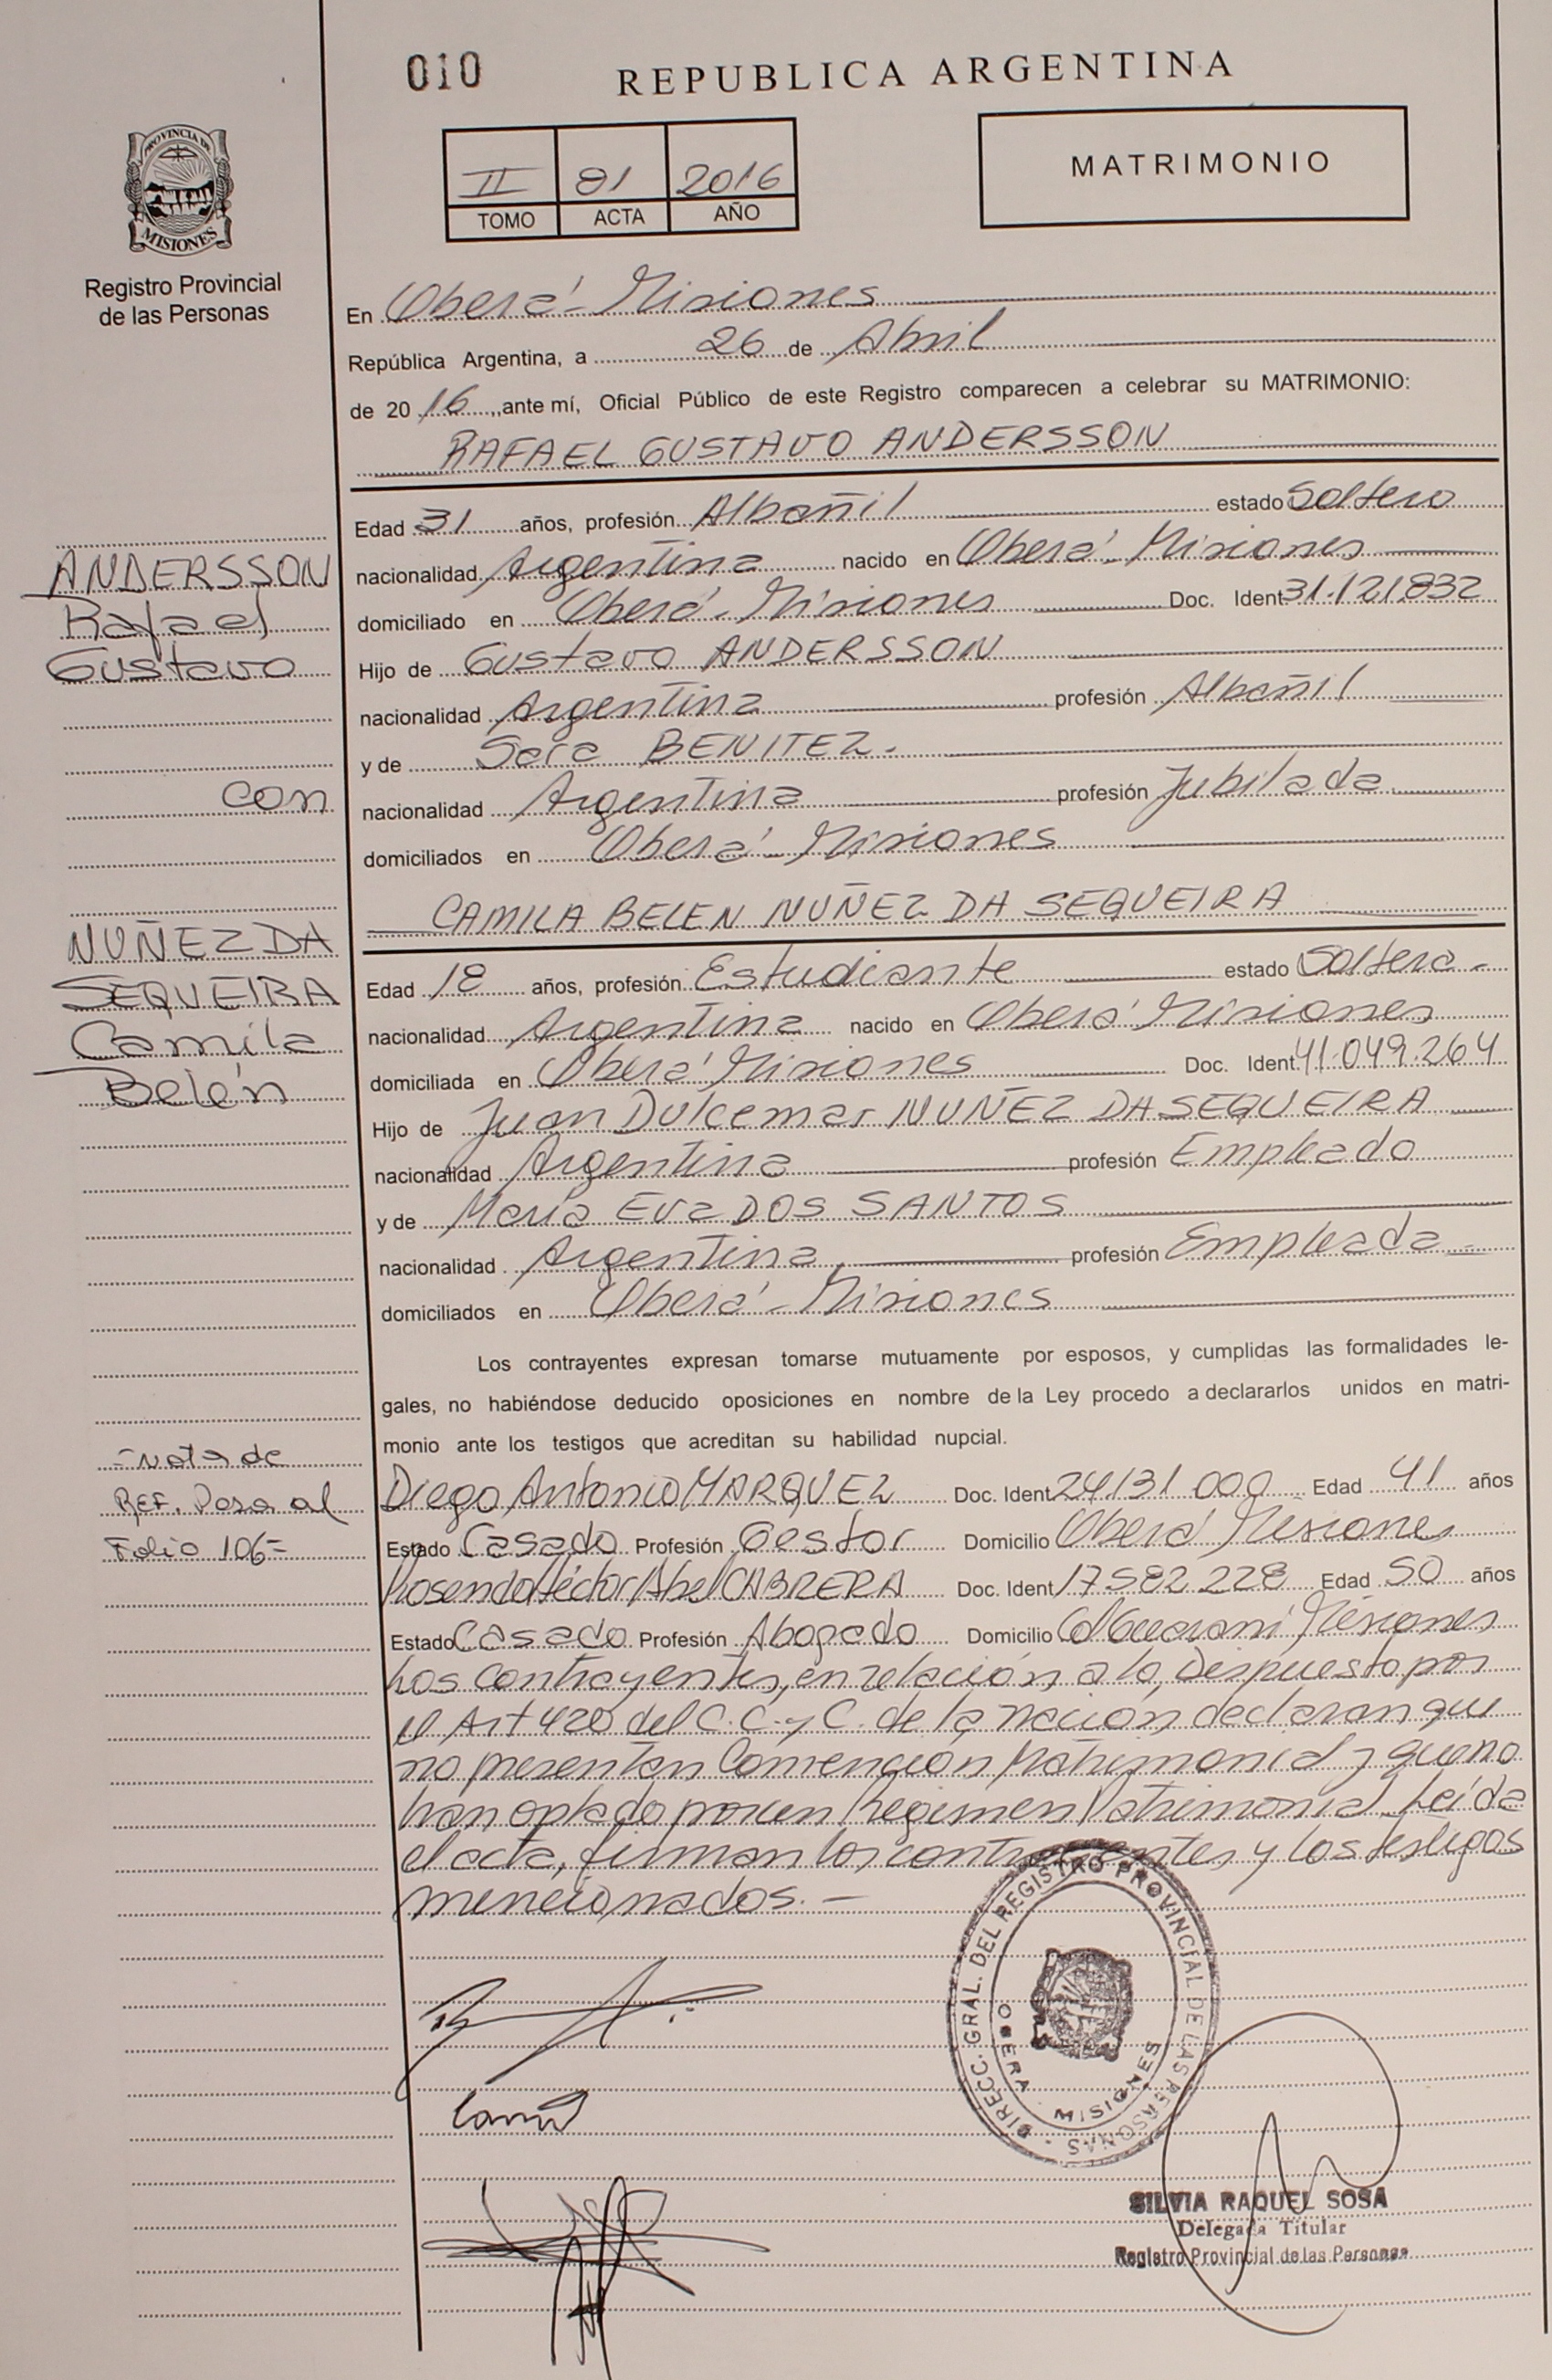 010
REPUBLICA ARGENTINA
PROVINCIA DE
MISIONES
Registro Provincial
de las Personas
II 81 2016
TOMO ACTA AÑO
MATRIMONIO
En Oberá - Misiones
República Argentina, a 26 de Abril
de 2016, ante mí, Oficial Público de este Registro comparecen a celebrar su MATRIMONIO:
RAFAEL GUSTAVO ANDERSSON
Edad 31 años, profesión Albañil estado Soltero
nacionalidad Argentina nacido en Oberá - Misiones
domiciliado en Oberá - Misiones Doc. Ident. 31.121.832
Hijo de Gustavo ANDERSSON
nacionalidad Argentina profesión Albañil
y de Sara BENITEZ.
nacionalidad Argentina profesión Jubilada
domiciliados en Oberá - Misiones
ANDERSSON
Rafael
Gustavo
con
NUÑEZ DA
SEQUEIRA
Camila
Belén
CAMILA BELEN NUÑEZ DA SEQUEIRA
Edad 18 años, profesión Estudiante estado Soltera -
nacionalidad Argentina nacido en Oberá Misiones
domiciliada en Oberá Misiones Doc. Ident. 41.049.264
Hijo de Juan Dulcemar NUÑEZ DA SEQUEIRA
nacionalidad Argentina profesión Empleado
y de María Eva DOS SANTOS
nacionalidad Argentina profesión Empleada -
domiciliados en Oberá - Misiones
Los contrayentes expresan tomarse mutuamente por esposos, y cumplidas las formalidades le-
gales, no habiéndose deducido oposiciones en nombre de la Ley procedo a declararlos unidos en matri-
monio ante los testigos que acreditan su habilidad nupcial.
- Nota de
REF. Pasa al
Folio 106 -
Diego Antonio MARQUEZ Doc. Ident 24131000 Edad 41 años
Estado Casado Profesión Gestor Domicilio Oberá Misiones
Rosendo Héctor Abel CABRERA Doc. Ident 17582228 Edad 50 años
Estado Casado Profesión Abogado Domicilio Col Guaraní Misiones
Los contrayentes, en relación a lo Dispuesto por
el Art 420 del C.C. y C. de la Nación, declaran que
no presentan Convención Matrimonial y que no
han optado por un Régimen Patrimonial. Leída
el acta, firman los contrayentes y los testigos
mencionados. -
DIRECC. GRAL. DEL REGISTRO PROVINCIAL DE LAS PERSONAS
OBERA MISIONES
Camil
SILVIA RAQUEL SOSA
Delegada Titular
Registro Provincial de las Personas